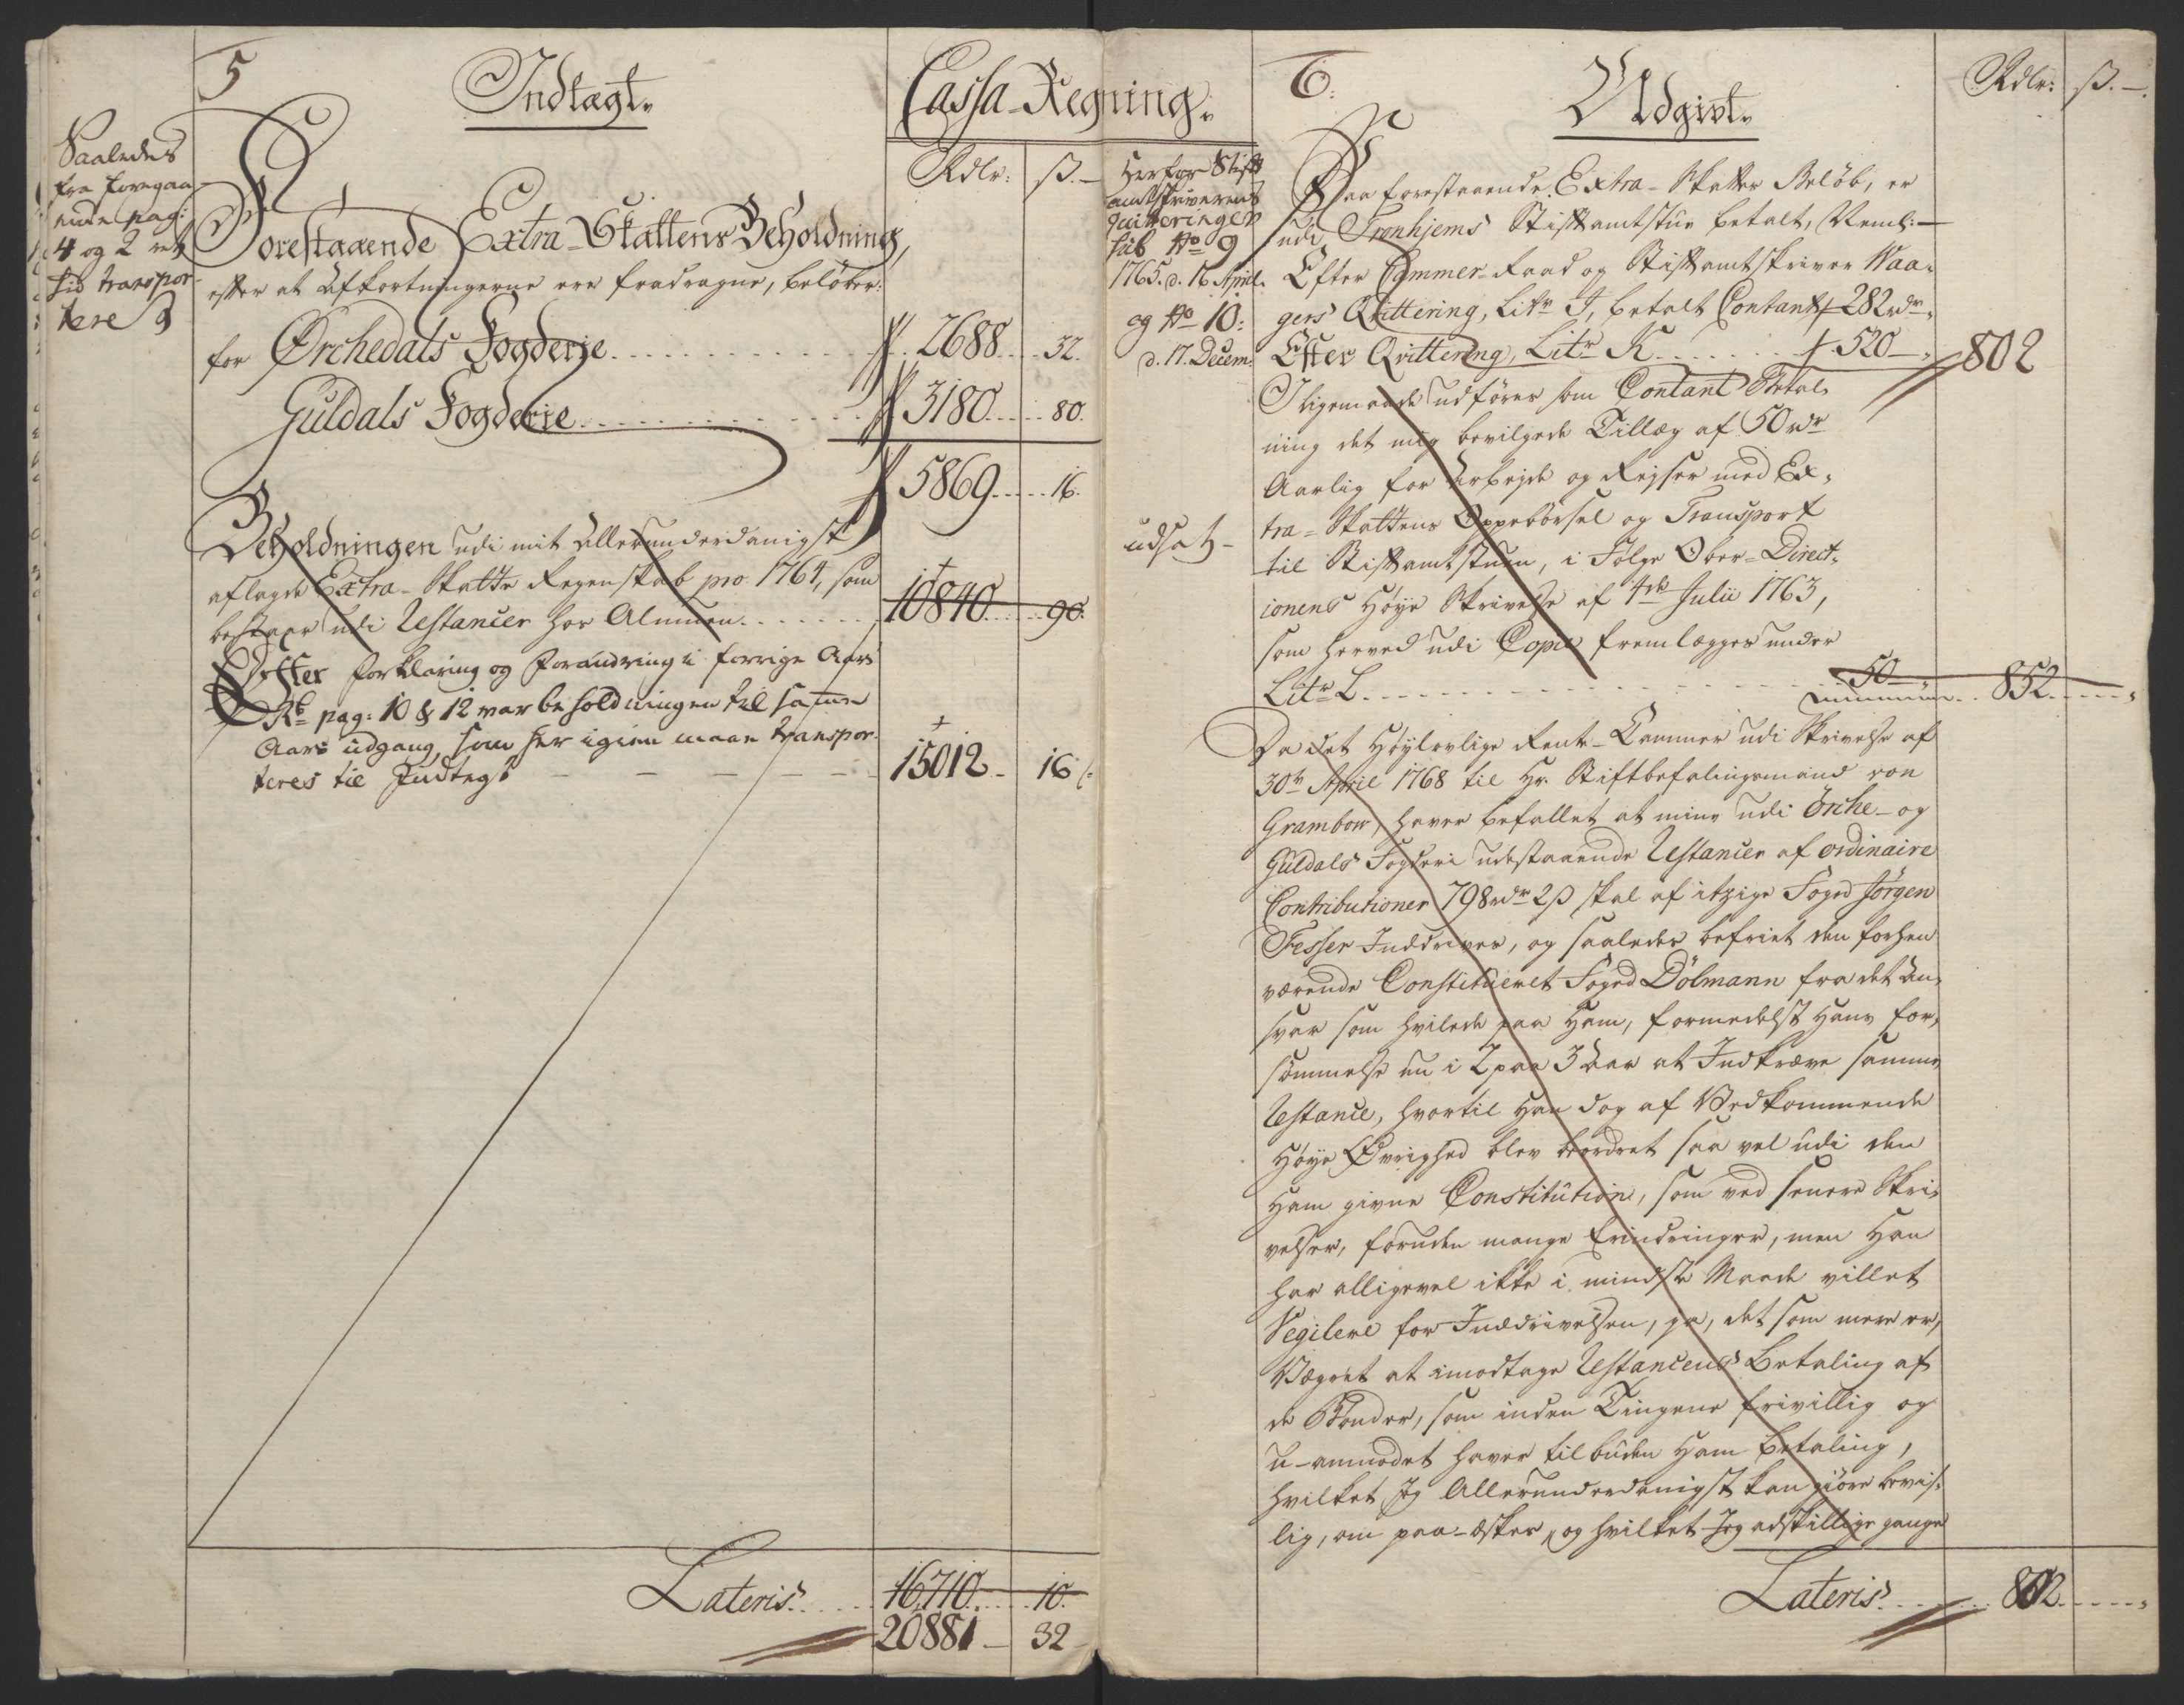 5
Indtægt.
Cassa-Regning.
Rdlr: ß.
Saaledes
fra foregaa-
ende pag:
4 og 2 ret
hid transpor-
tere
Forestaaende Extra-Skattens Beholdning,
efter at Afkortningerne ere fradragne, beløber:
for Ørchedals Fogderie 2688 32.
Guldals Fogderie 3180 80.
5869 16.
Beholdningen udi mit Allerunderdanigst
aflagde Extra-Skatte Regenskab pro 1764, som
bestaar udi Restancer hos Almuen 10840 90.
Efter forklaring og forandring i forrige Aars
Rb pag: 10 & 12 var beholdningen til samme
Aars udgang, som her igien maae transpor-
teres til Indtegt 15012 16
Lateris 16710 10.
20881 32
6.
Udgivt.
Rdlr: ß.
Herfor Stift
amtskriverens
quitteringer
sub No 9
1765. d. 16 April.
og No 10:
d. 17. Decem:
Paa forestaaende Extra-Skatter Beløb, er
udi Tronhjems Stiftamtstue betalt, Neml:
Efter Cammer-Raad og Stiftamtskriver Waa-
gers Qvittering, Litr I, betalt Contant 282 rdr
Efter Qvittering, Litr K 520 802
Iligemaade udføres som Contant Betal-
ning det mig bevilgede Tillæg af 50 rdr
Aarlig for Arbejde og Rejser med Ex-
tra-Skattens Oppebørsel og Transport
udsat
til Stiftamtstuen, i Følge Ober-Direct-
ionens Høye Skrivelse af 4de Julii 1763,
som herved udi Copie fremlægges under
Litr L 50 852
Da det Høylovlige Rente-Cammer udi Skrivelse af
30te April 1768 til Hr. Stiftbefalingsmand von
Grambow, haver befallet at mine udi Örche- og
Guldals Fogderi udestaaende Restancer af ordinaire
Contributioner 798 rdr 2 ß skal af itzige Foged Jörgen
Fesser Inddrives, og saaledes befriet den forhen
værende Constitueret Foged Dölmann fra det An-
svar som hvilede paa Ham, formedelst Hans for-
sømmelse nu i 2 paa 3 Aar at Indkræve samme
Restance, hvortil Han dog af Vedkommende
Høye Øvrighed blev beordret saa vel udi den
Ham givne Constitution, som ved senere Skri-
velser, foruden mange Erindringer, men Han
har alligevel ikke i mindste Maade villet
Vegilere for Inddrivelsen, ja, det som mere er,
Vægret at imodtage Restancens Betaling af
de Bönder, som inden Tingene frivillig og
u-anmodet haver tilbuden Ham betaling,
hvilket Jeg Allerunderdanigst kan giöre bevis-
lig, om paa-æskes, og hvilket Jeg adskillige gange
Lateris 802